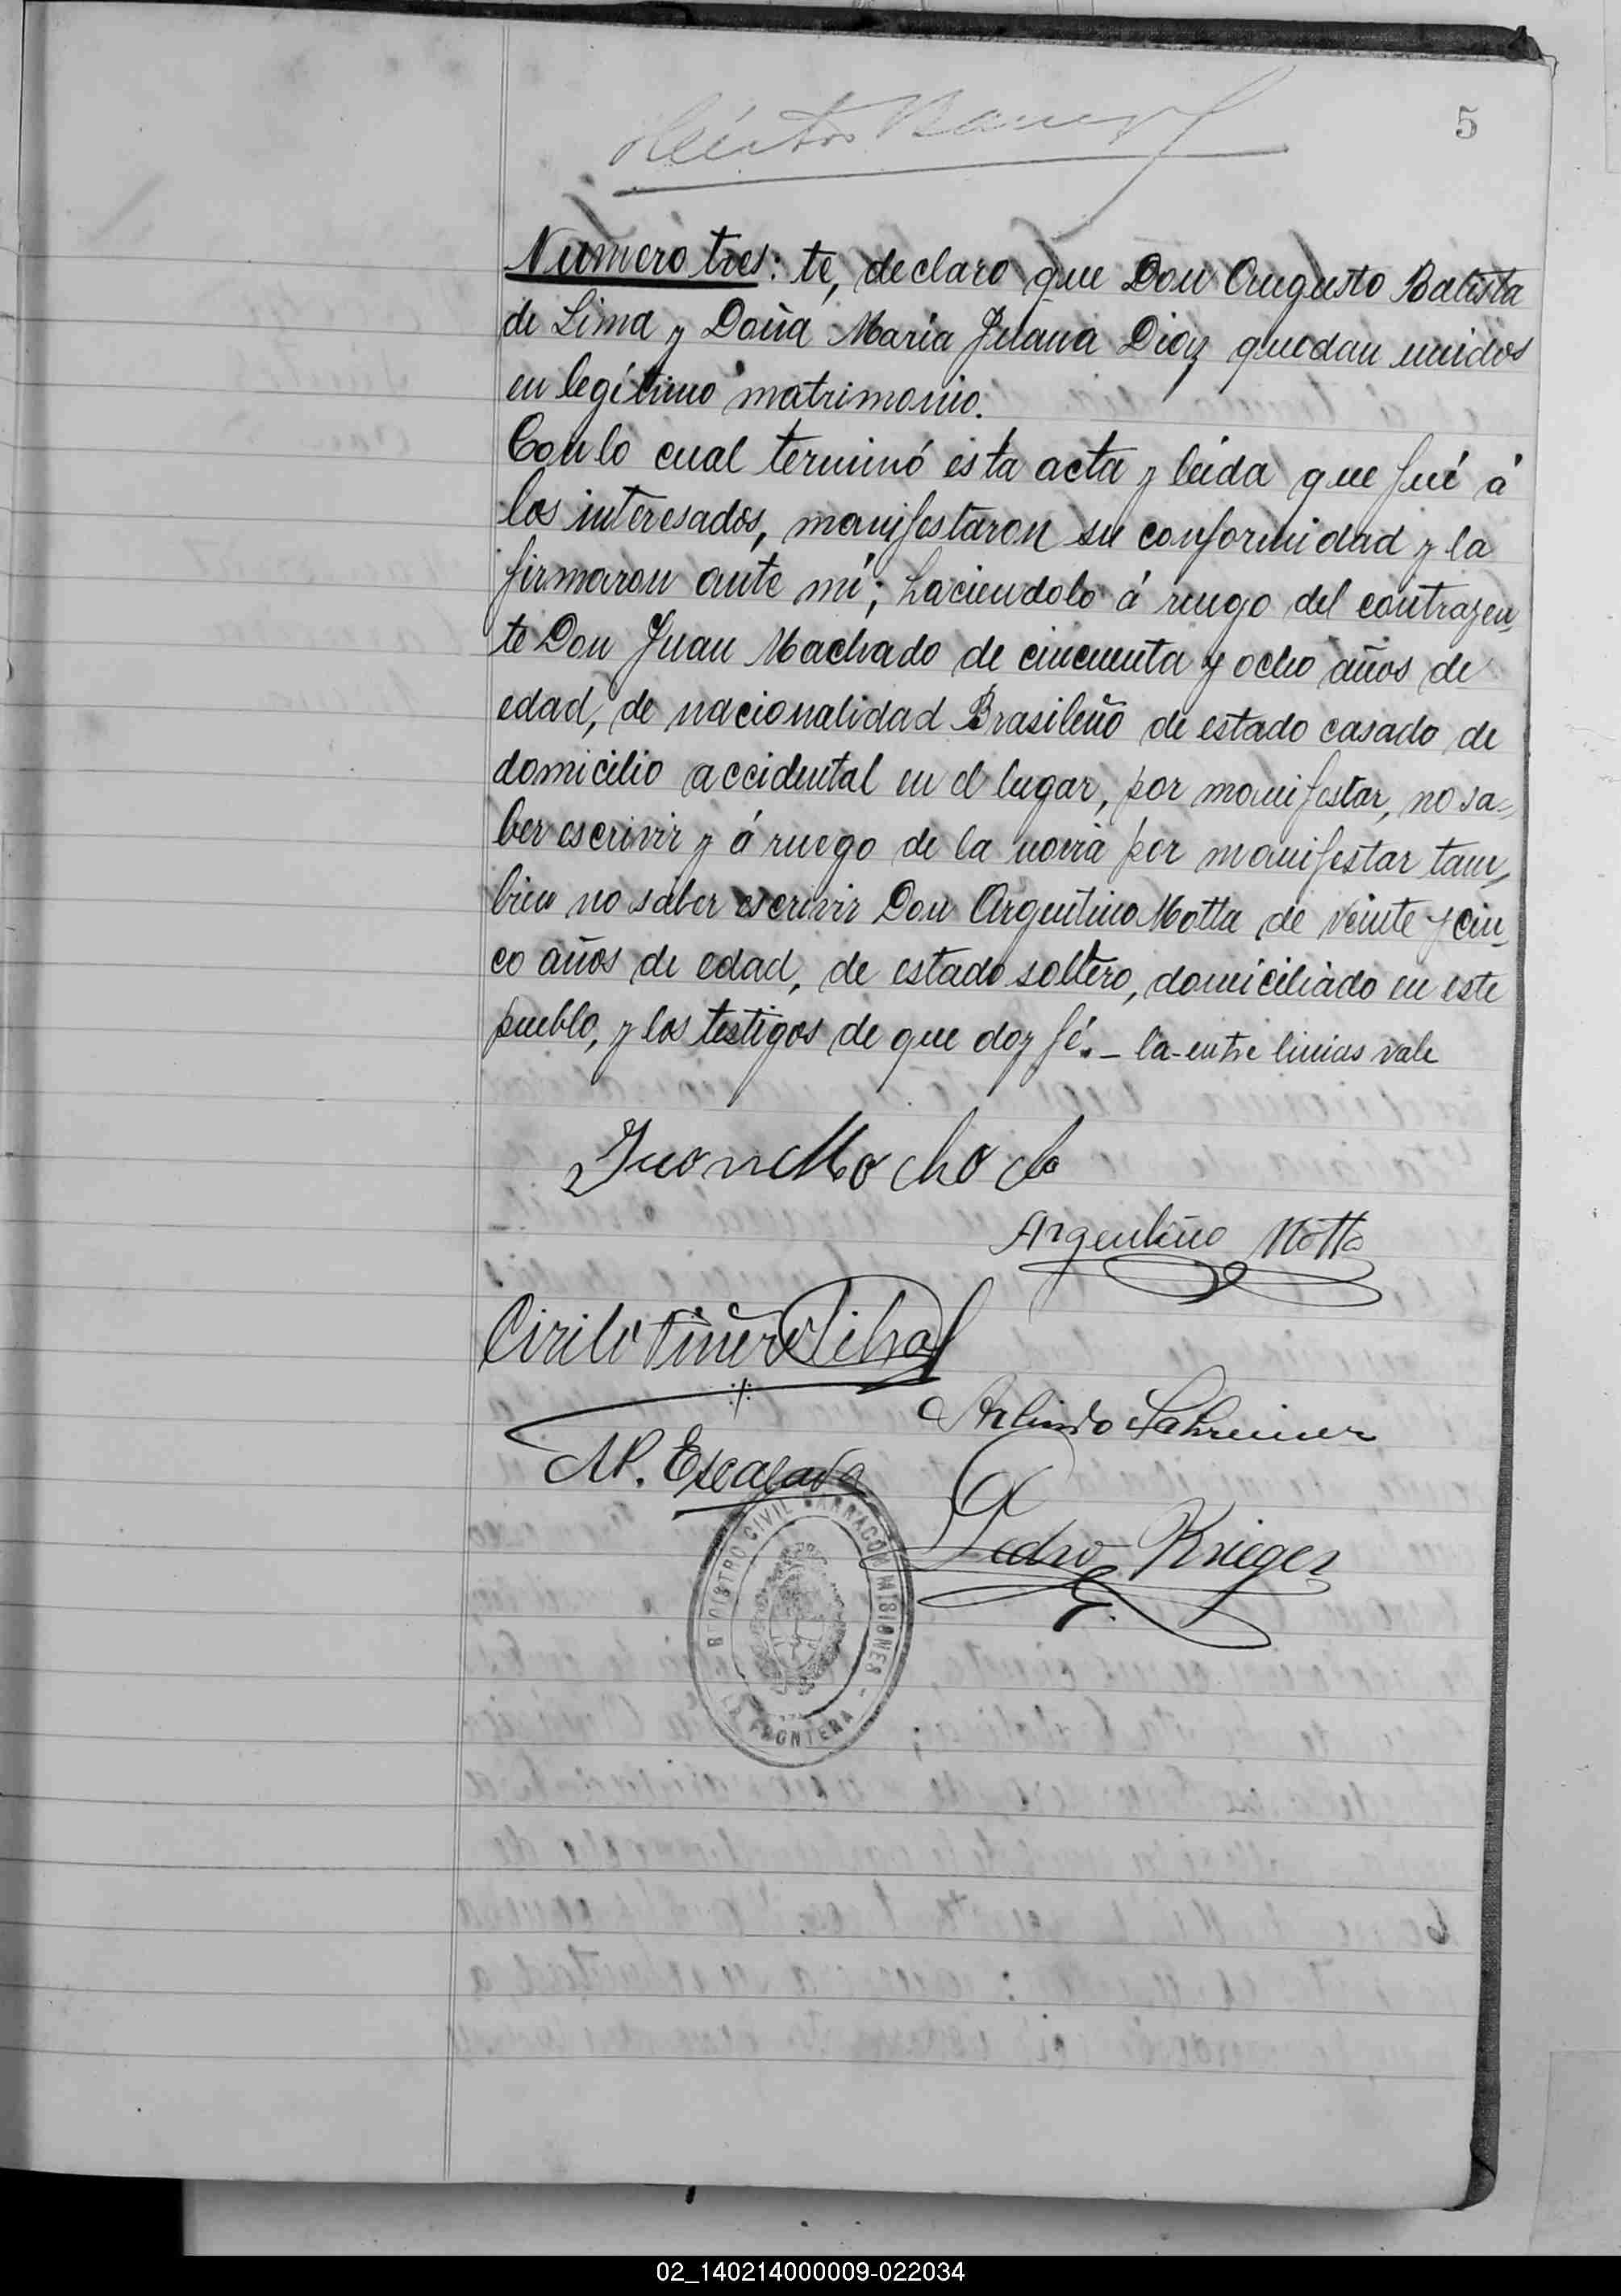 5
Numero tres: te, declaro que Don Augusto Batista
de Lima y Doña Maria Juana Diaz quedan unidos
en legítimo matrimonio.
Con lo cual terminó esta acta y leida que fué á
los interesados, manifestaron su conformidad y la
firmaron ante mí; haciendolo á ruego del contrayen
te Don Juan Machado de cincuenta y ocho años de
edad, de nacionalidad Brasileño de estado casado de
domicilio accidental en el lugar, por manifestar, no sa=
ber escrivir y á ruego de la novia por manifestar tam
bien no saber escrivir Don Argentino Motta de veinte y cin
co años de edad, de estado soltero, domiciliado en este
pueblo, y los testigos de que doy fé. _ la-entre linias vale
Juan Machado
Argentino Motta
Cirilo Silva
Arlindo Schreiner
AP. Escalada
Pedro Krieger
REGISTRO CIVIL BARRACON MISIONES -
LA FRONTERA
02_140214000009-022034